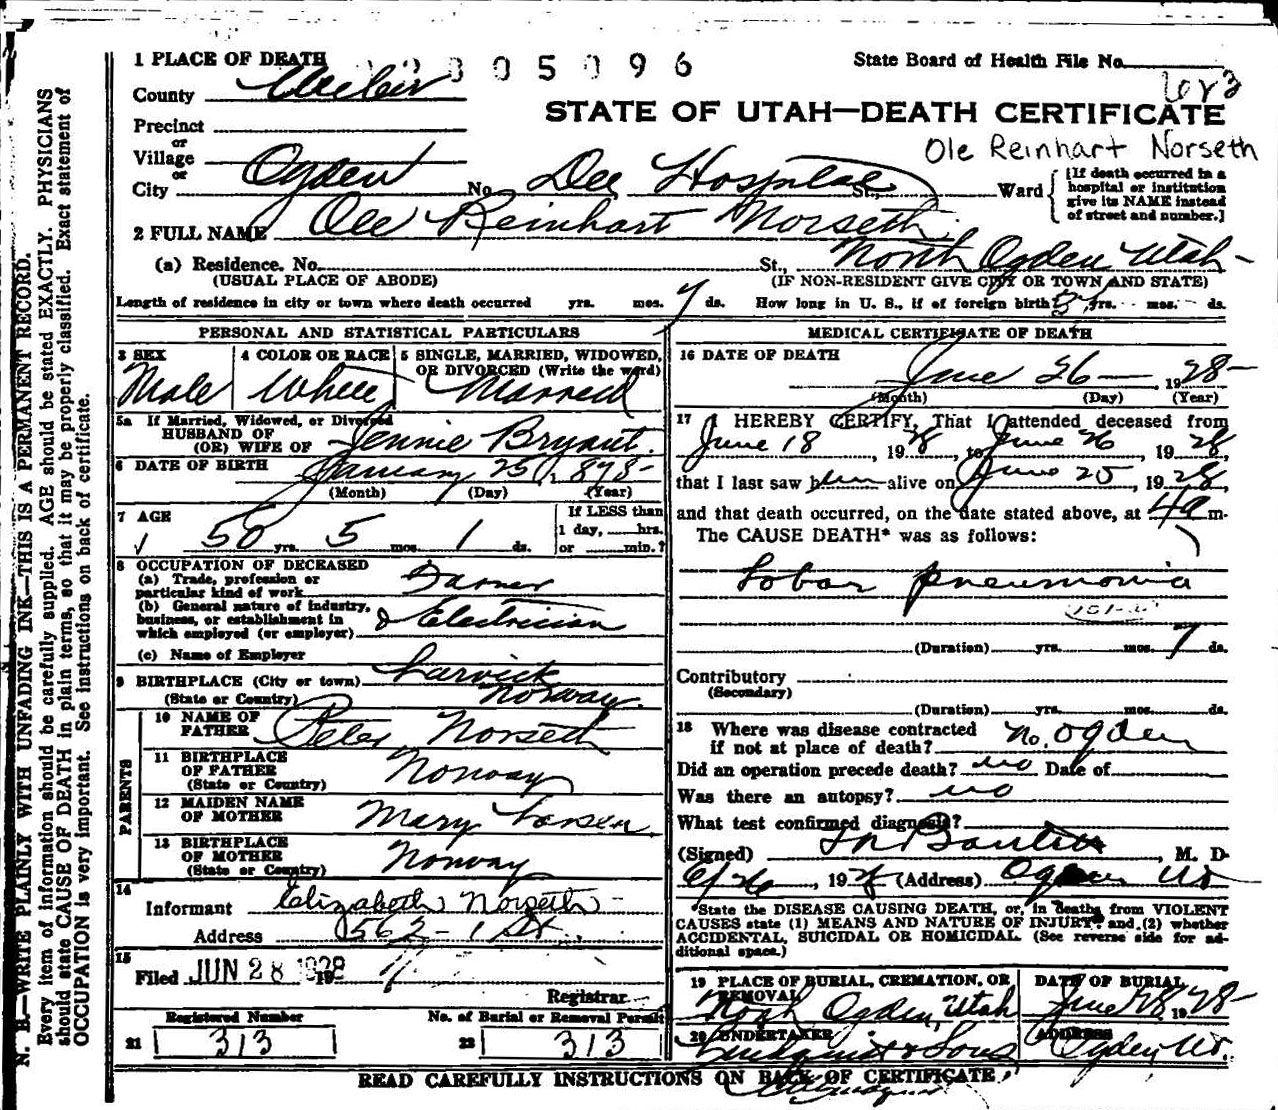 1 PLACE OF DEATH
305096
State Board of Health File No.
County Weber
STATE OF UTAH—DEATH CERTIFICATE
Precinct
or
Village
or
City Ogden No. Dee Hospital St., Ward
Ole Reinhart Norseth
[If death occurred in a
hospital or institution
give its NAME instead
of street and number.]
2 FULL NAME Ole Reinhart Norseth
(a) Residence. No. St., North Ogden Utah
(USUAL PLACE OF ABODE) (IF NON-RESIDENT GIVE CITY OR TOWN AND STATE)
Length of residence in city or town where death occurred yrs. mos. 7 ds. How long in U. S., if of foreign birth? yrs. mos. ds.
PERSONAL AND STATISTICAL PARTICULARS
3 SEX
Male
4 COLOR OR RACE
White
5 SINGLE, MARRIED, WIDOWED,
OR DIVORCED (Write the word)
Married
5a If Married, Widowed, or Divorced
HUSBAND OF
(OR) WIFE OF Jennie Bryant
6 DATE OF BIRTH January 25, 1878
(Month) (Day) (Year)
7 AGE
50 yrs. 5 mos. 1 ds.
If LESS than
1 day, hrs.
or min.?
8 OCCUPATION OF DECEASED
(a) Trade, profession or
particular kind of work Farmer
(b) General nature of industry,
business, or establishment in
which employed (or employer) & Electrician
(c) Name of Employer
9 BIRTHPLACE (City or town) Larvick
(State or Country) Norway.
PARENTS
10 NAME OF
FATHER Peter Norseth
11 BIRTHPLACE
OF FATHER
(State or Country) Norway
12 MAIDEN NAME
OF MOTHER Mary Larsen
13 BIRTHPLACE
OF MOTHER
(State or Country) Norway
14
Informant Elizabeth Norseth
Address 1562 - 1 St.
15
Filed JUN 28 1928
Registrar
Registered Number
21 313
No. of Burial or Removal Permit
22 313
MEDICAL CERTIFICATE OF DEATH
16 DATE OF DEATH
June 26 1928
(Month) (Day) (Year)
17 I HEREBY CERTIFY, That I attended deceased from
June 18, 1928, to June 26, 1928,
that I last saw him alive on June 25, 1928,
and that death occurred, on the date stated above, at 4 a m.
The CAUSE DEATH* was as follows:
Lobar pneumonia
(Duration) yrs. mos. 7 ds.
Contributory
(Secondary)
(Duration) yrs. mos. ds.
18 Where was disease contracted
if not at place of death? No. Ogden
Did an operation precede death? no Date of
Was there an autopsy? no
What test confirmed diagnosis?
(Signed) , M. D.
6/26, 1928 (Address) Ogden Ut
*State the DISEASE CAUSING DEATH, or, in deaths from VIOLENT
CAUSES state (1) MEANS AND NATURE OF INJURY; and (2) whether
ACCIDENTAL, SUICIDAL OR HOMICIDAL. (See reverse side for ad-
ditional space.)
19 PLACE OF BURIAL, CREMATION, OR
REMOVAL
North Ogden, Utah
DATE OF BURIAL
June 28 1928
20 UNDERTAKER
Lindquist & Sons
ADDRESS
Ogden Ut.
READ CAREFULLY INSTRUCTIONS ON BACK OF CERTIFICATE
N. B.—WRITE PLAINLY WITH UNFADING INK—THIS IS A PERMANENT RECORD.
Every item of information should be carefully supplied. AGE should be stated EXACTLY. PHYSICIANS
should state CAUSE OF DEATH in plain terms, so that it may be properly classified. Exact statement of
OCCUPATION is very important. See instructions on back of certificate.